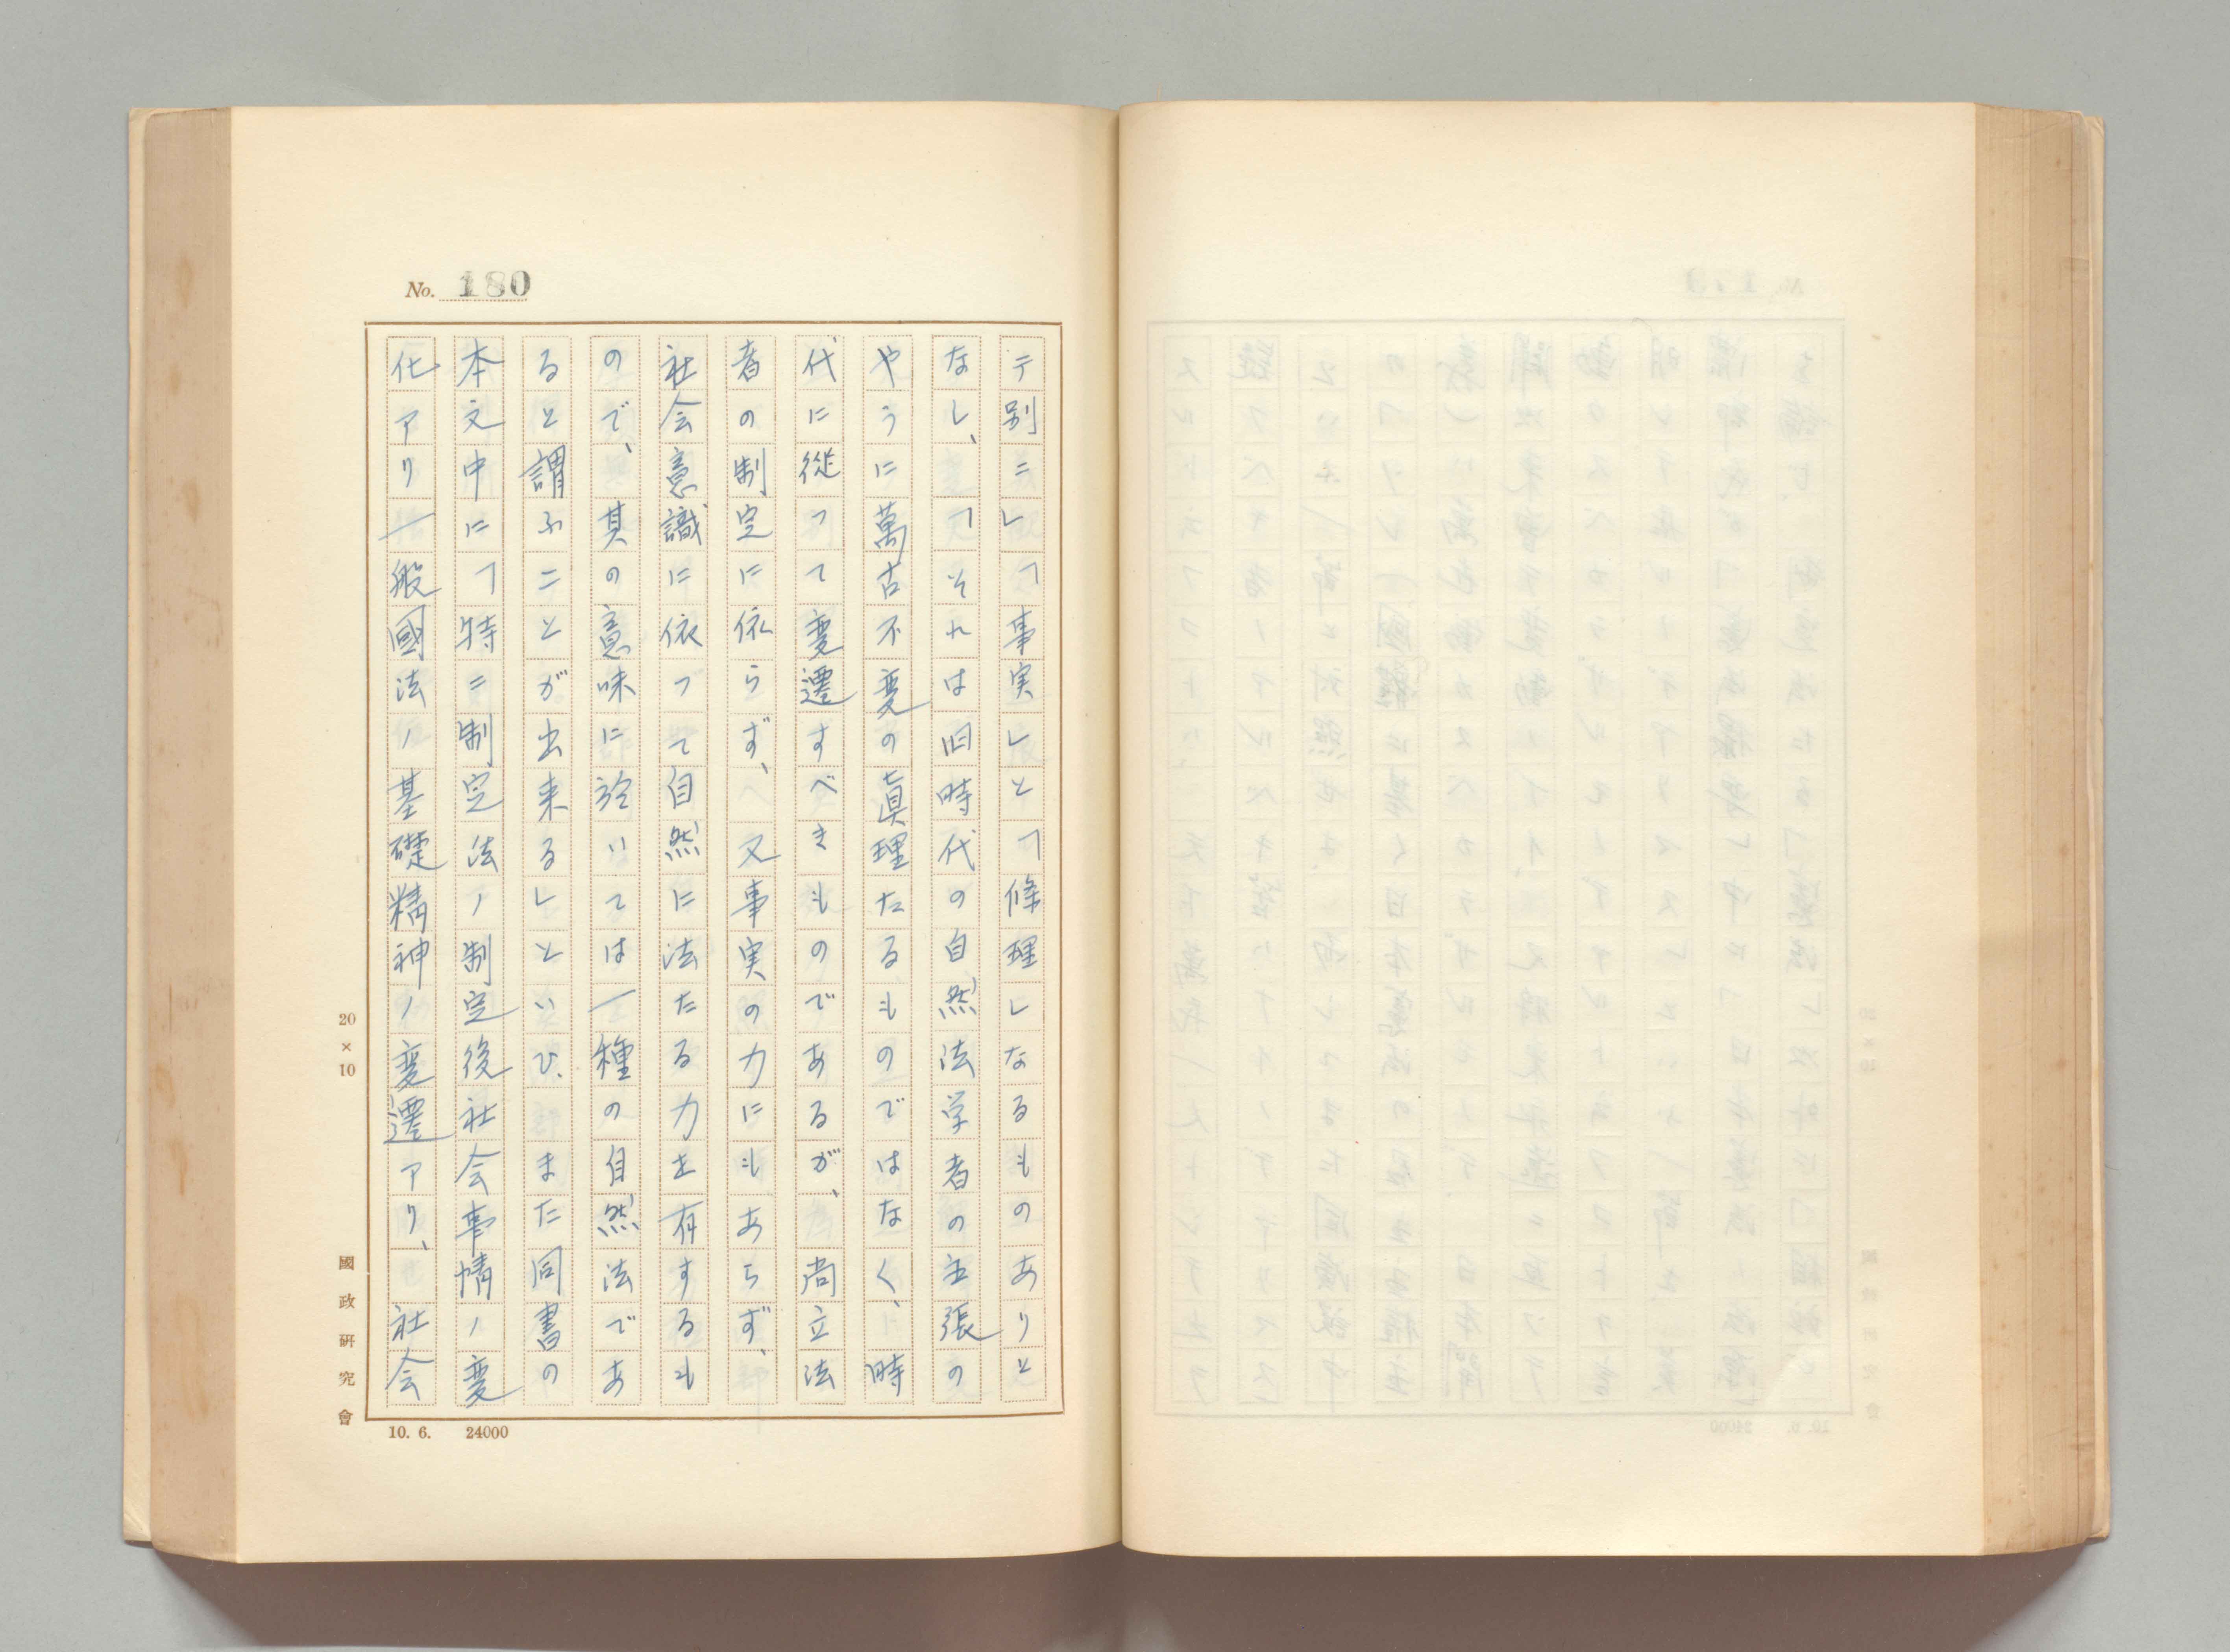 No. 180
テ別ニ」「事実」と「條理」なるものありと
なし、「それは旧時代の自然法学者の主張の
やうに萬古不変の眞理たるものではなく、時
代に從つて変遷すべきものであるが、尚立法
者の制定に依らず、又事実の力にもあらず、
社会意識に依つて自然に法たる力を有するも
ので、其の意味に於いては一種の自然法であ
ると謂ふことが出来る」といひ、また同書の
本文中に「特ニ制定法ノ制定後社会事情ノ変
化アリ一般國法ノ基礎精神ノ変遷アリ、社会
20×10
國政研究會
10. 6. 24000